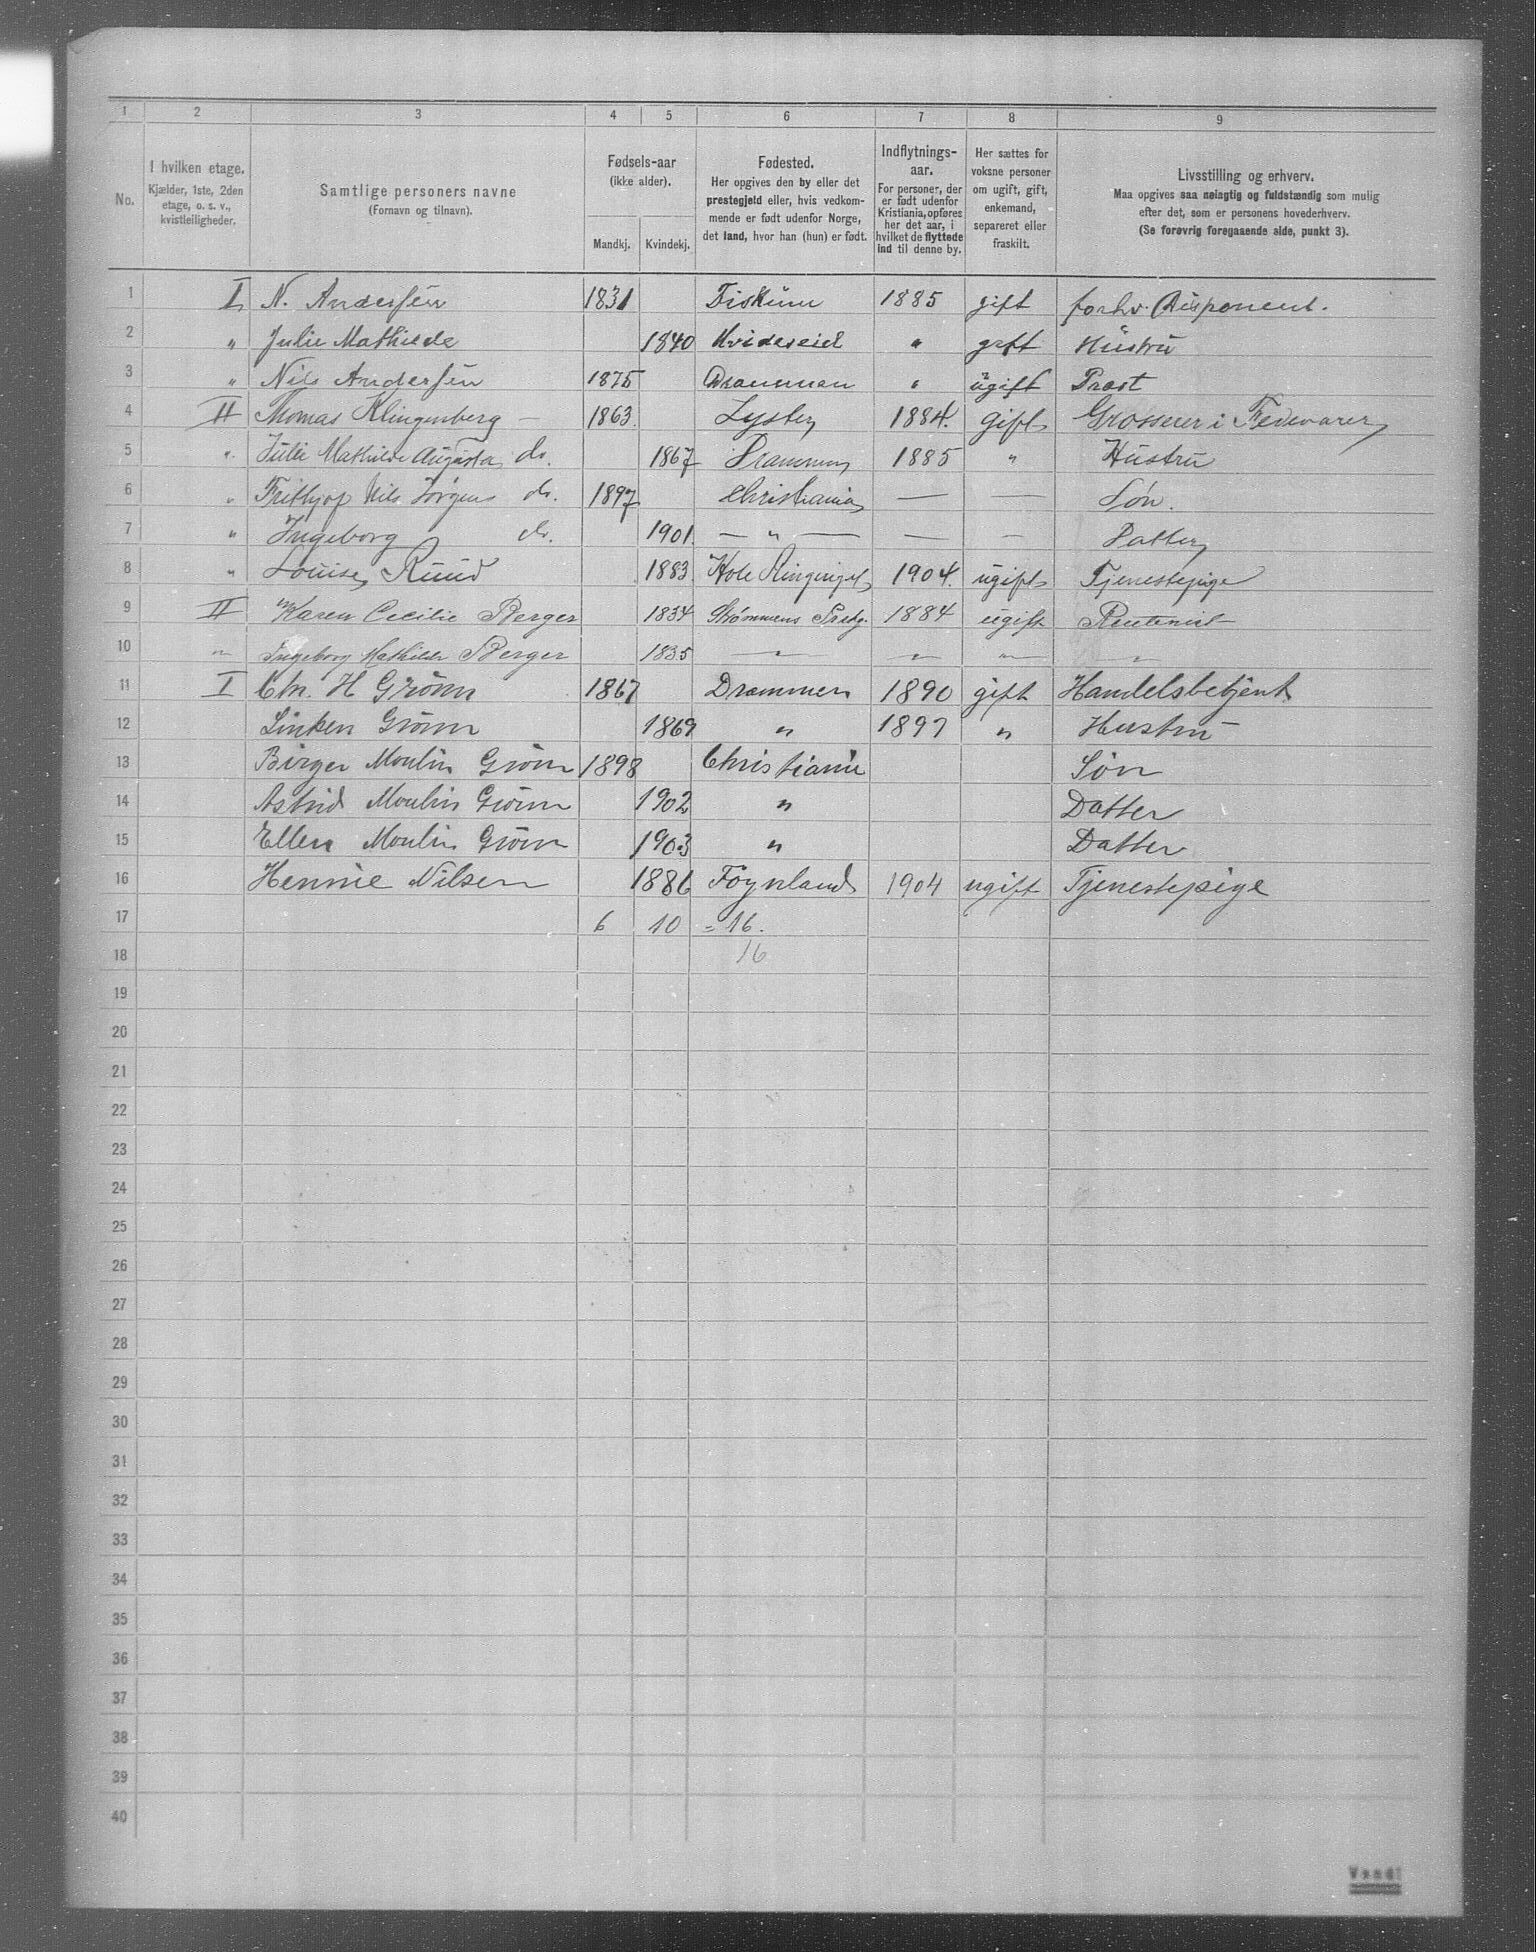 1 2 3 4 5 6 7 8 9
No.
I hvilken etage.
Kjælder, 1ste, 2den
etage, o. s. v.,
kvistleiligheder.
Samtlige personers navne
(Fornavn og tilnavn).
Fødsels-aar
(ikke alder).
Mandkj. Kvindekj.
Fødested.
Her opgives den by eller det
prestegjeld eller, hvis vedkom-
mende er født udenfor Norge,
det land, hvor han (hun) er født.
Indflytnings-
aar.
For personer, der
er født udenfor
Kristiania, opføres
her det aar, i
hvilket de flyttede
ind til denne by.
Her sættes for
voksne personer
om ugift, gift,
enkemand,
separeret eller
fraskilt.
Livsstilling og erhverv.
Maa opgives saa nøiagtig og fuldstændig som mulig
efter det, som er personens hovederhverv.
(Se forøvrig foregaaende side, punkt 3).
1 I N. Andersen 1831 Fiskum 1885 gift forhv. Disponent.
2 " Julie Mathilde 1840 Kvideseid " gift Hustru
3 " Nils Andersen 1875 Drammen " ugift Præst
4 II Thomas Klingenberg — 1863. Lyster 1884. gift Grosserer i Fedevarer
5 " Julie Mathilde Augusta do. 1867 Drammen 1885 " Hustru
6 " Frithjof Nils Jørgens do. 1897 Christiania — — Søn.
7 " Ingeborg do. 1901. — " — — — Datter
8 " Louise Ruud 1883 Hole Ringerige 1904. ugift Tjenestepige
9 II Karen Cecilie Berger 1834 Strømmens Prstg. 1884 ugift Rentenist
10 " Ingeborg Mathilde Berger 1835 " " " "
11 I Chr. H Grönn 1867 Drammen 1890 gift Handelsbetjent
12 Linken Grönn 1869 " 1897 " Hustru
13 Birger Moulin Grönn 1898 Christiania Søn
14 Astrid Moulin Grönn 1902 " Datter
15 Ellen Moulin Grönn 1903 " Datter
16 Hennie Nilsen 1886 Föynland 1904 ugift Tjenestepige
17 6 10 = 16.
18 16
19
20
21
22
23
24
25
26
27
28
29
30
31
32
33
34
35
36
37
38
39
40
Vend!